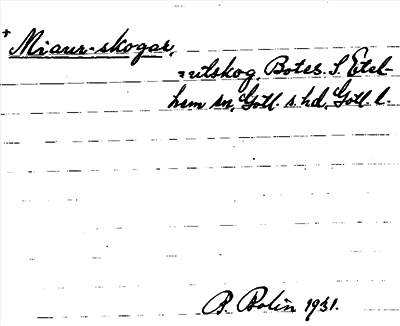 +
Miaur-skogar,
=utskog, Botes. S. Etel-
hem sn, Gotl. s. hd, Gotl. l.
B. Bolin 1931.